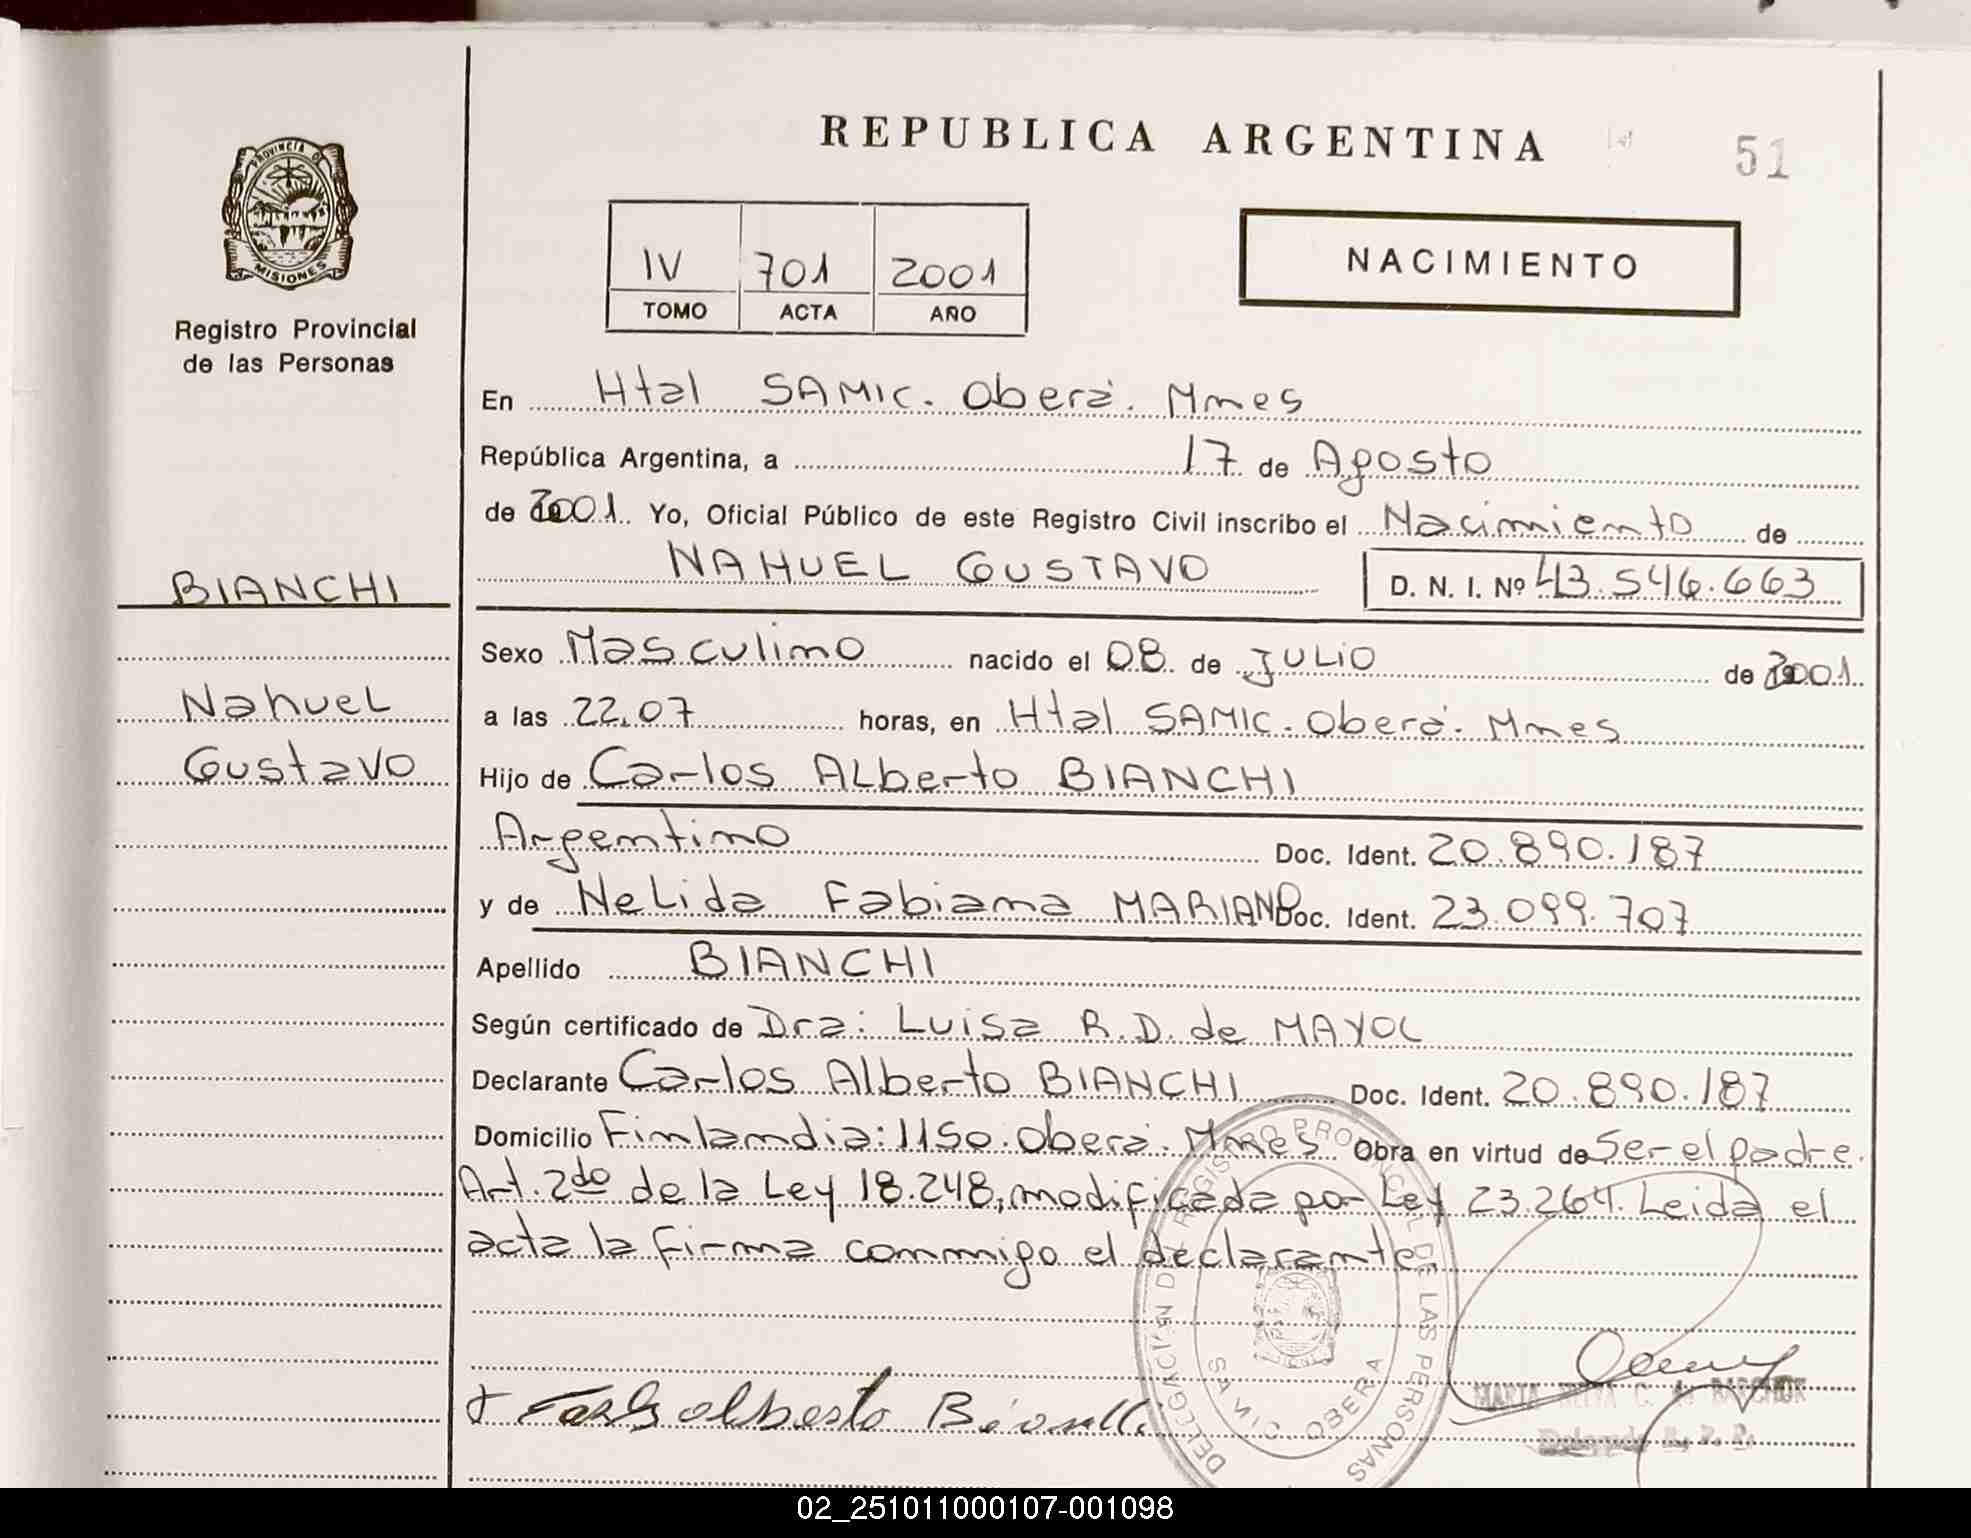 REPUBLICA ARGENTINA
51
PROVINCIA D
MISIONES
Registro Provincial
de las Personas
IV 701 2001
TOMO ACTA AÑO
NACIMIENTO
En Htal SAMIC. Oberá. Mnes
República Argentina, a 17 de Agosto
de 2001. Yo, Oficial Público de este Registro Civil inscribo el Nacimiento de
NAHUEL GUSTAVO D. N. I. Nº 43.546.663
BIANCHI
Nahuel
Gustavo
Sexo Masculino nacido el 08 de JULIO de 2001.
a las 22.07 horas, en Htal SAMIC. Oberá. Mnes
Hijo de Carlos Alberto BIANCHI
Argentino Doc. Ident. 20.890.187
y de Nelida Fabiana MARIANO Doc. Ident. 23.099.707
Apellido BIANCHI
Según certificado de Dra: Luisa R.D. de MAYOL
Declarante Carlos Alberto BIANCHI Doc. Ident. 20.890.187
Domicilio Finlandia: 1150. Oberá. Mnes Obra en virtud de Ser el padre.
Art. 2do de la Ley 18.248, modificada por Ley 23.264. Leida el
acta la firma conmigo el declarante
DELEGACION DEL REGISTRO PROVINCIAL DE LAS PERSONAS
SAMIC OBERA
Carlos alberto Bianchi
MARIA C. de
Delegada R. P. P.
02_251011000107-001098